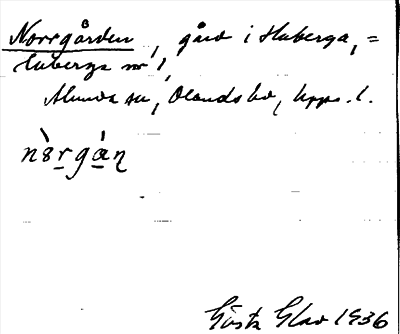 Norrgården, gård i Huberga, =
luberga nr 1,
Alunda sn, Olands hd, Upps. l.
nòrgán
Gösta Glad 1936